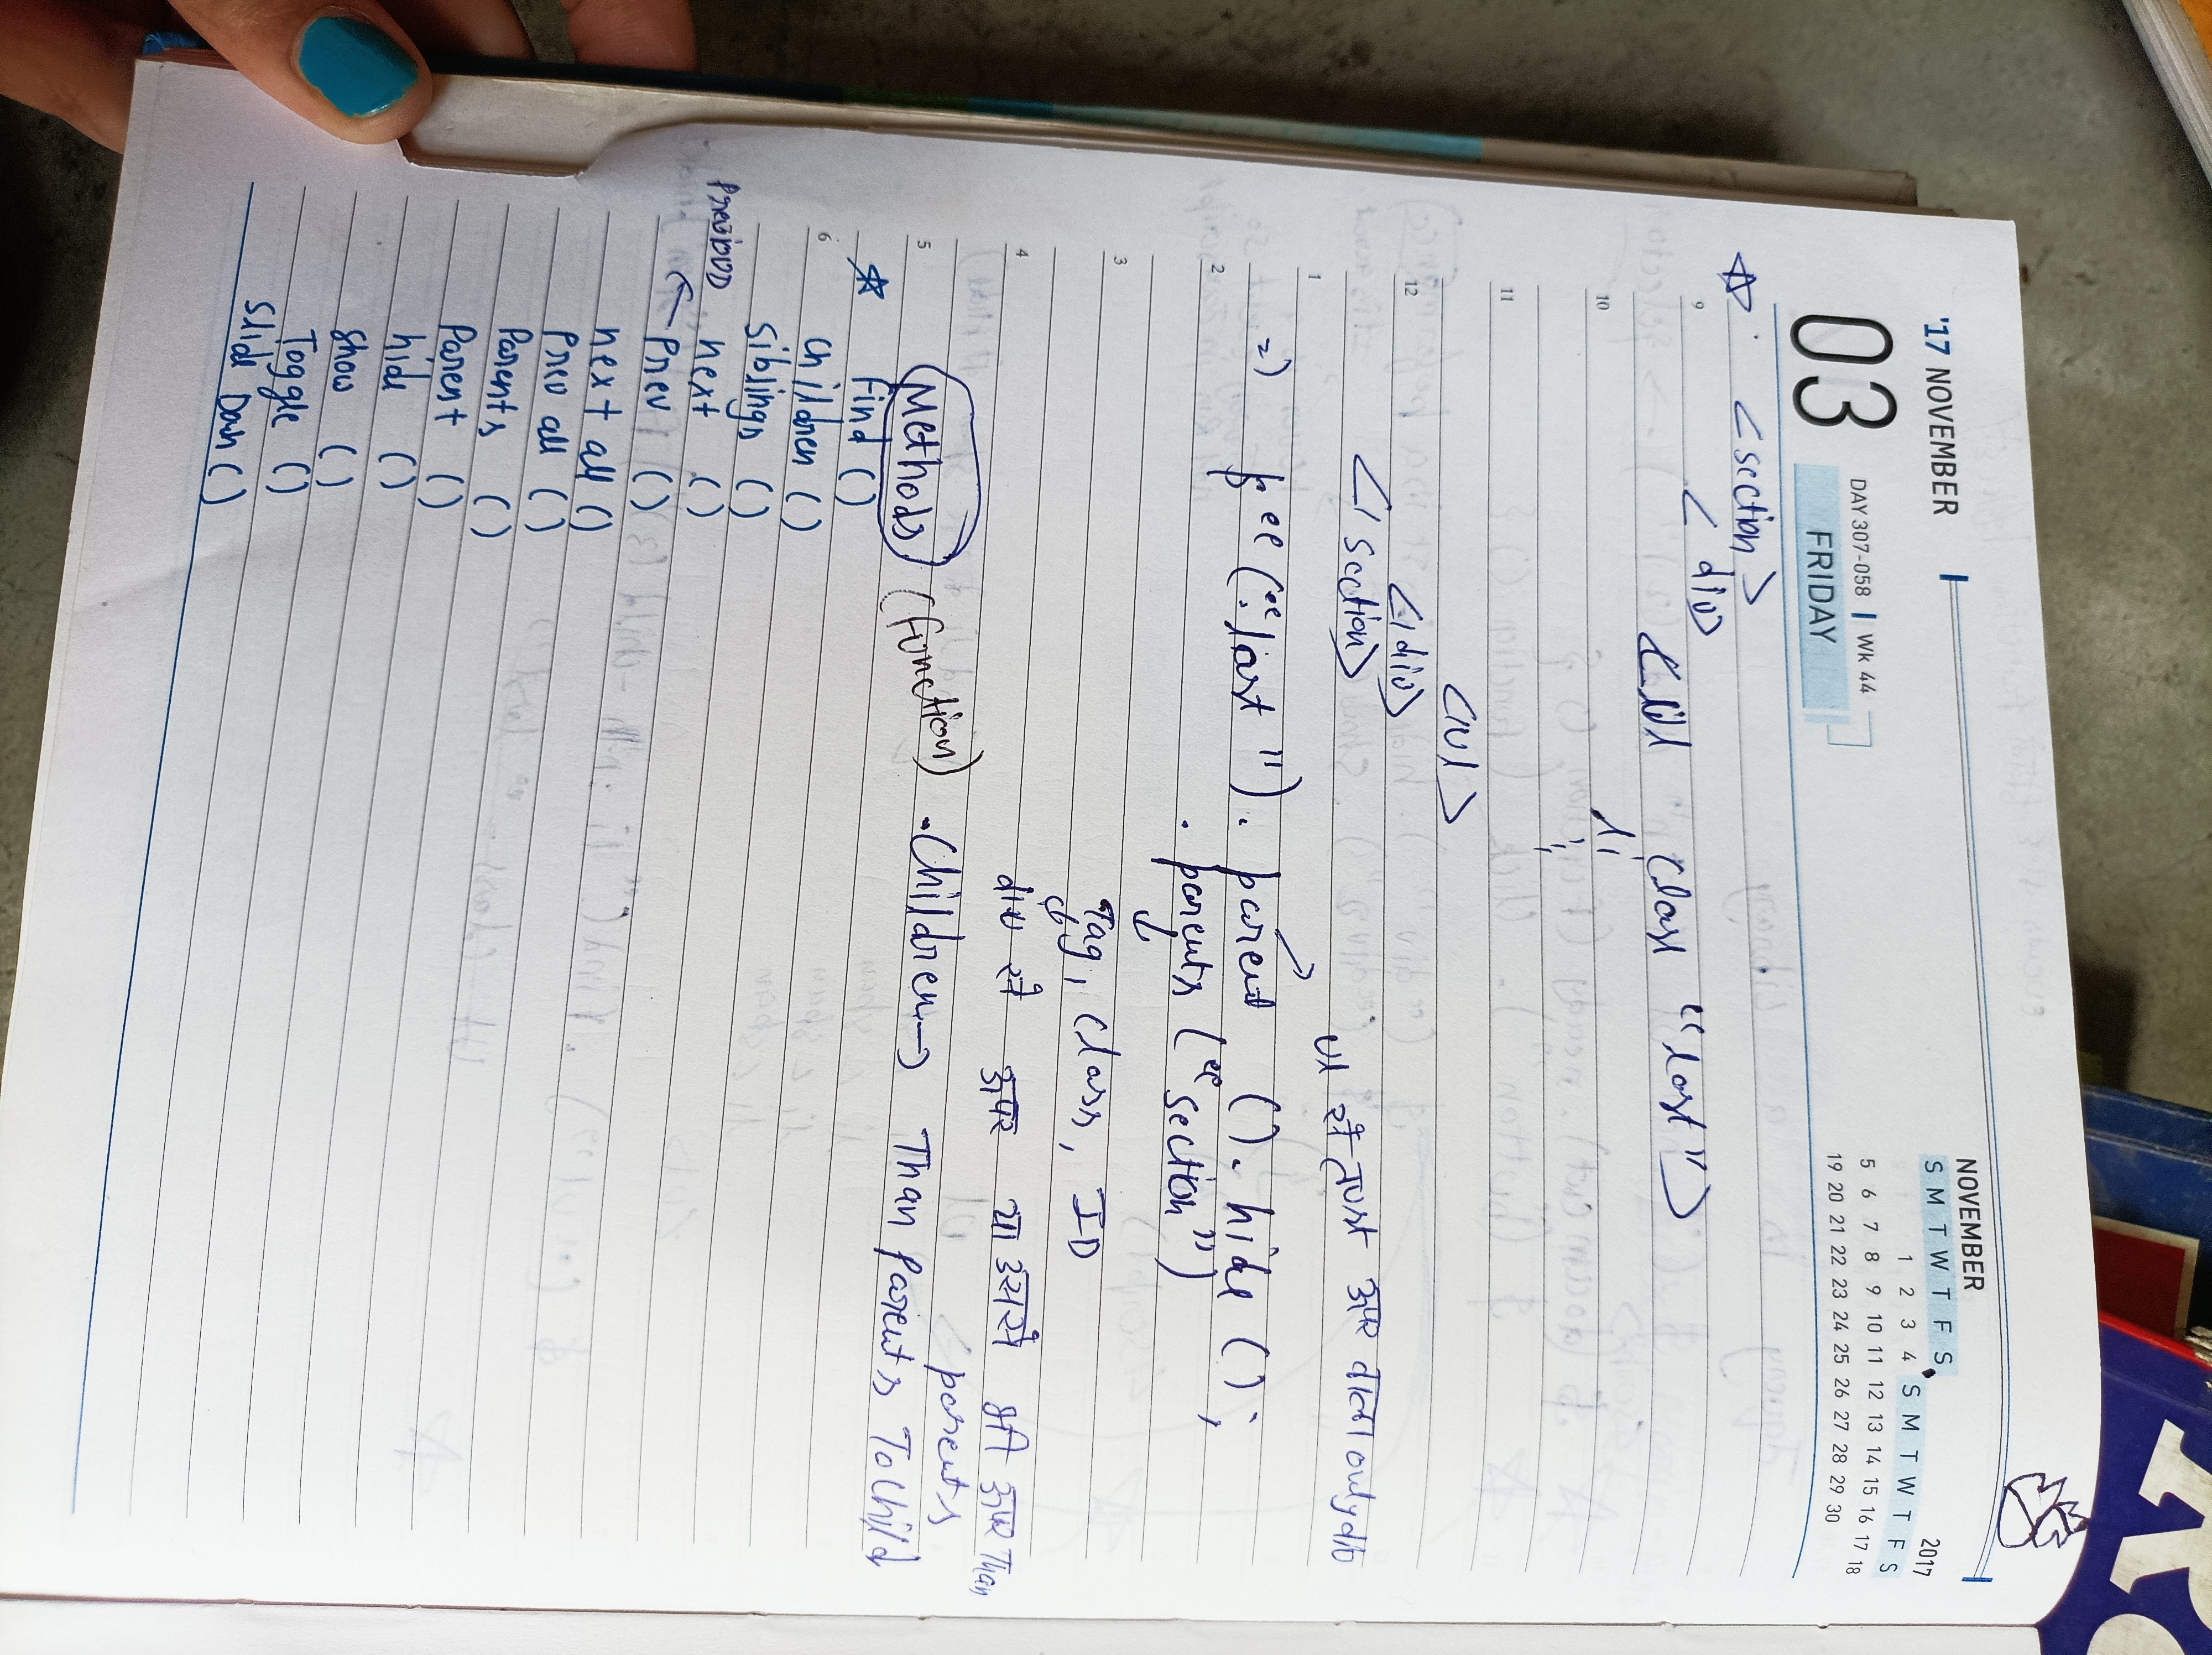 '17 NOVEMBER
03
DAY 307-058 | Wk 44
FRIDAY
NOVEMBER
2017
S M T W T F S S M T W T F S
1 2 3 4
5 6 7 8 9 10 11 12 13 14 15 16 17 18
19 20 21 22 23 24 25 26 27 28 29 30
<section>
9
<div>
class "last">
10
li
11
</ul>
12
</div>
</section>
ul से just ऊपर वाला only div
1
=) $ (".last"). parent (). hide ();
2
. parents ("section")
3
Tag, Class, ID
4
div से ऊपर या उससे भी ऊपर Than
parents
5
Methods (function) .Children → Than parents To Child
find ()
6
children ()
siblings ()
next ()
Previous
Prev ()
next all ()
Prev all ()
Parents ()
Parent ()
hide ()
Show ()
Toggle ()
Slide Down ()